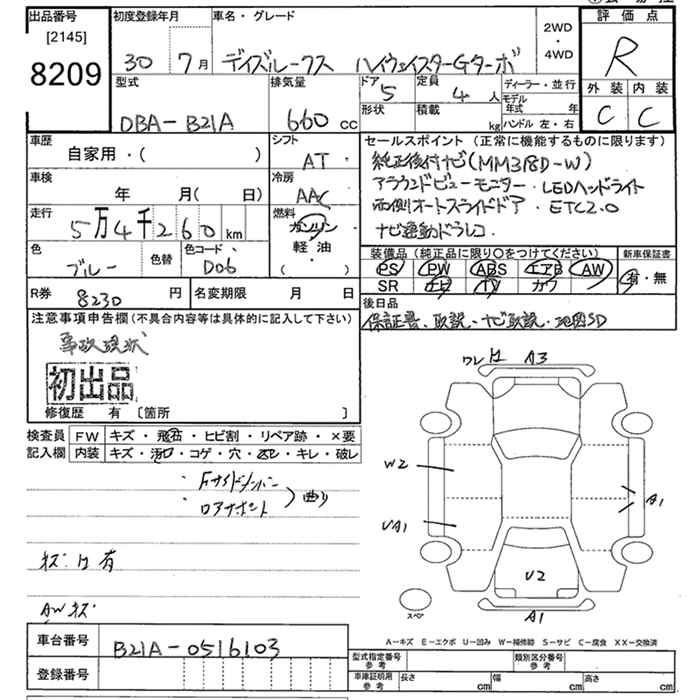 出品番号
[2145]
8209
初度登録年月
30 7月
車名・グレード
デイズルークス ハイウェイスターGターボ
2WD
・
4WD
評価点
R
外装 内装
C C
型式
DBA-B21A
排気量
660 cc
ドア 5
定員 4 人
形状
積載 kg
ディーラー・並行
モデル年式 年
ハンドル 左・右
車歴
自家用・( )
シフト
AT
車検
年 月( 日)
冷房
AAC
走行
5万4千260km
燃料
ガソリン
軽油
( )
色
ブルー
色替
色コード
D06
R券 8230 円
名変期限 月 日
セールスポイント(正常に機能するものに限ります)
純正後付ナビ(MM318D-W)
アラウンドビューモニター・LEDヘッドライト
両側オートスライドドア・ETC2.0
ナビ連動ドラレコ
装備品(純正品に限り○をつけてください)
新車保証書
PS PW ABS エアB AW
SR ナビ TV カワ
有・無
後日品
保証書、取説、ナビ取説・地図SD
注意事項申告欄(不具合内容等は具体的に記入して下さい)
事故現状
初出品
修復歴 有 [箇所 ]
検査員
記入欄
FW キズ・飛石・ヒビ割・リペア跡・×要
内装 キズ・汚れ・コゲ・穴・ネジ・キレ・破レ
・Fサイドメンバー
・ロアサポート
曲り
キズ凹有
AWキズ
車台番号 B21A-0516103
登録番号
ワレ凹 A3
W2
UA1
A1
U2
A1
スペア
A-キズ E-エクボ U-凹み W-補修跡 S-サビ C-腐食 XX-交換済
型式指定番号
参考
類別区分番号
参考
車庫証明用
参考
長さ cm
幅 cm
高さ cm